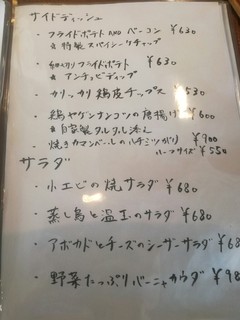 サイドディッシュ
・フライドポテト AND ベーコン ¥630
★特製スパイシーケチャップ
・細切りフライドポテト ¥630
★アンチョビディップ
・カリッカリ鶏皮チップス ¥530
・鶏ヤゲンナンコツの唐揚げ ¥600
★自家製タルタル添え
・焼きカマンベールのハチミツがけ ¥900
ハーフサイズ ¥550
サラダ
・小エビの焼サラダ ¥680
・蒸し鳥と温玉のサラダ ¥680
・アボカドとチーズのシーザーサラダ ¥68
・野菜たっぷりバーニャカウダ ¥98